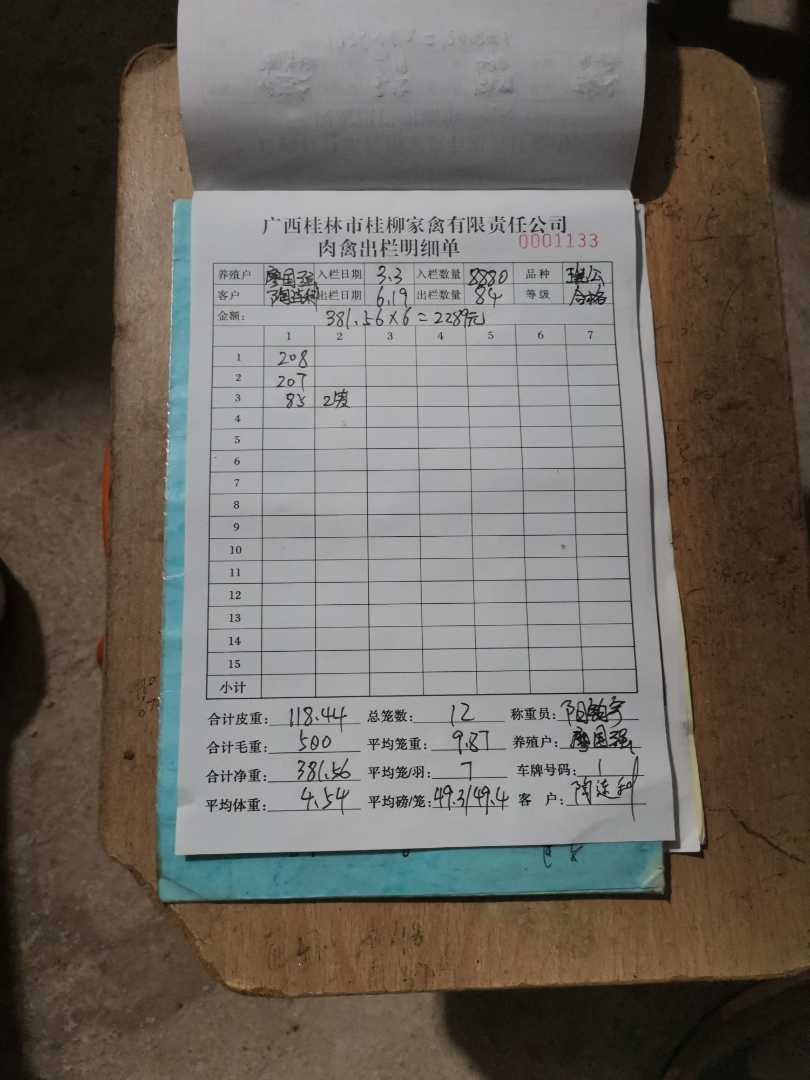 广西桂林市桂柳家禽有限责任公司
肉禽出栏明细单 0001133
养殖户 廖国强 入栏日期 3.3 入栏数量 8880 品种
客户 陶连利 出栏日期 6.19 出栏数量 84 等级 合格
金额: 381.56×6=2289元
1 2 3 4 5 6 7
1 208
2 207
3 85 2笼
4
5
6
7
8
9
10
11
12
13
14
15
小计
合计皮重: 118.44 总笼数: 12 称重员:
合计毛重: 500 平均笼重: 9.87 养殖户: 廖国强
合计净重: 381.56 平均笼/羽: 7 车牌号码: /
平均体重: 4.54 平均磅/笼: 49.3/49.4 客 户: 陶连利